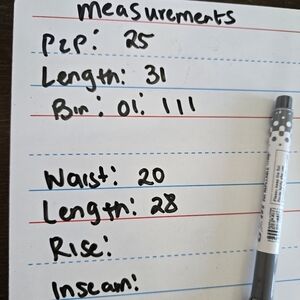 measurements
P2P: 25
Length: 31
Bin: 01: 111
Waist: 20
Length: 28
Rise:
Inseam: